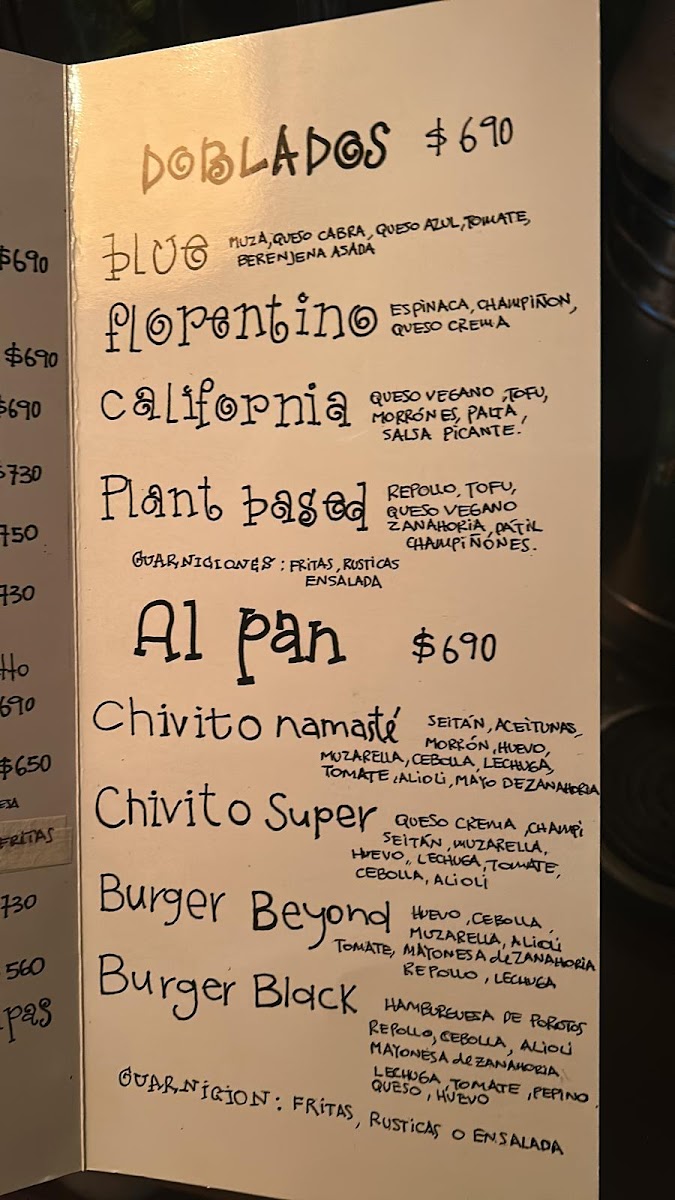 $690
$690
$690
$730
750
730
Ho
690
$650
ESA
FRITAS
730
560
pas
DOBLADOS $690
blue MUZA, QUESO CABRA, QUESO AZUL, TOMATE,
BERENJENA ASADA
florentino ESPINACA, CHAMPIÑON,
QUESO CREMA
california QUESO VEGANO, TOFU,
MORRÓNES, PALTA,
SALSA PICANTE.
Plant based REPOLLO, TOFU,
QUESO VEGANO
ZANAHORIA, DATIL
CHAMPIÑÓNES.
GUARNICIONES: FRITAS, RUSTICAS
ENSALADA
Al pan $690
Chivito namasté SEITÁN, ACEITUNAS,
MORRÓN, HUEVO,
MUZARELLA, CEBOLLA, LECHUGA,
TOMATE, ALIOLI, MAYO DE ZANAHORIA
Chivito Super QUESO CREMA, CHAMPI
SEITÁN, MUZARELLA,
HUEVO, LECHUGA, TOMATE,
CEBOLLA, ALIOLI
Burger Beyond HUEVO, CEBOLLA,
MUZARELLA, ALIOLI
TOMATE, MAYONESA de ZANAHORIA
REPOLLO, LECHUGA
Burger Black HAMBURGUESA DE POROTOS
REPOLLO, CEBOLLA, ALIOLI
MAYONESA de ZANAHORIA
LECHUGA, TOMATE, PEPINO
QUESO, HUEVO
GUARNICION: FRITAS, RUSTICAS O ENSALADA